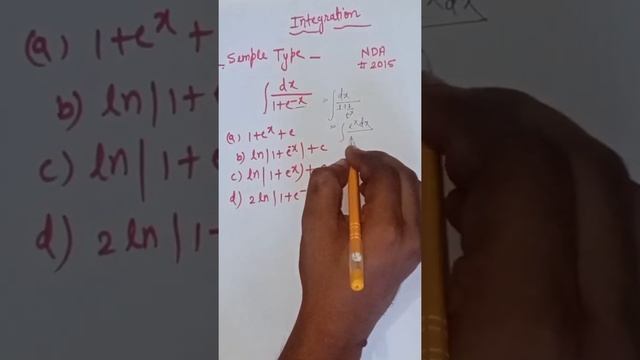 Integration
Simple Type — NDA
# 2015
∫ dx / 1+e^-x = ∫ dx / 1+1/e^x
= ∫ e^x dx
(a) 1+e^x + c
b) ln|1+e^-x| + c
c) ln|1+e^x) +
d) 2 ln|1+e^-
(a) 1+e^x +
b) ln|1
c) ln|1
d) 2 ln|1-